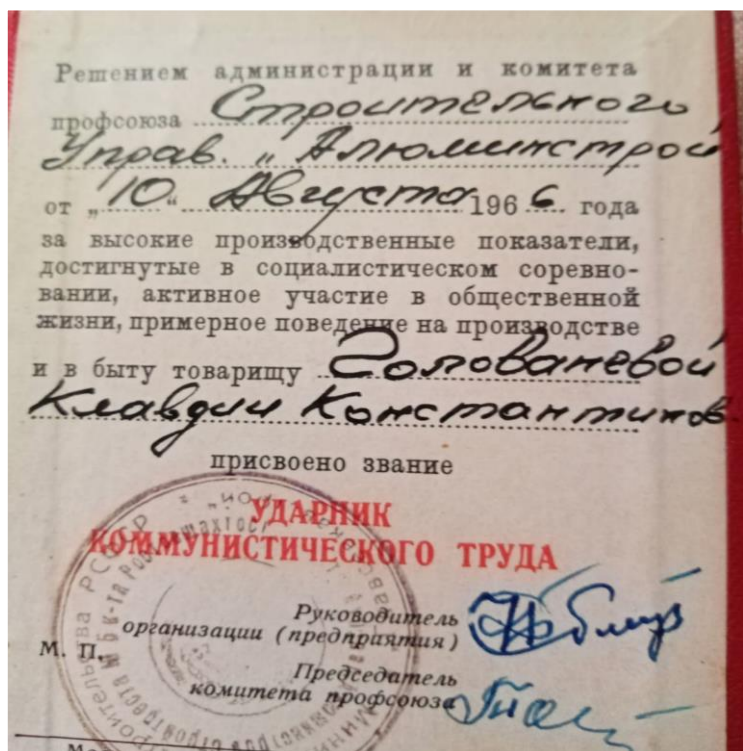 Решением администрации и комитета
профсоюза Строительного
Управ. „Алюминстрой
от „10“ Августа 1966 года
за высокие производственные показатели,
достигнутые в социалистическом соревно-
вании, активное участие в общественной
жизни, примерное поведение на производстве
и в быту товарищуГолованевой
Клавдии Константинов.
присвоено звание
УДАРНИК
КОММУНИСТИЧЕСКОГО ТРУДА
Руководитель
организации (предприятия)
М. П.
Председатель
комитета профсоюза